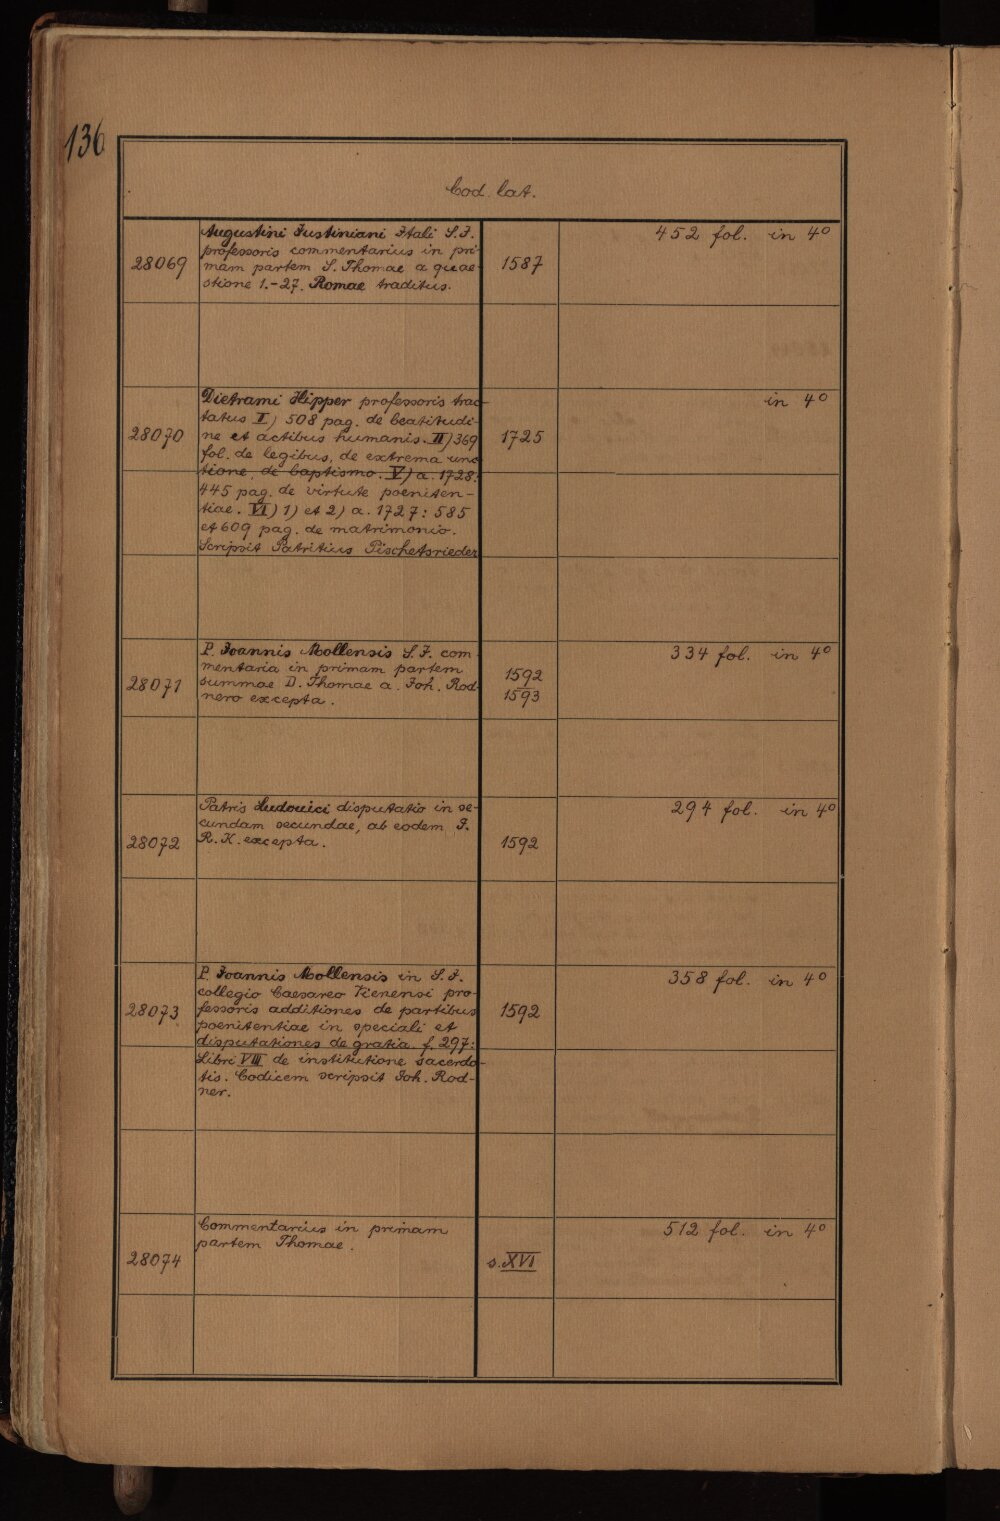 136
Cod. lat.
28069
Augustini Justiniani Itali S.J.
professoris commentarius in pri-
mam partem S. Thomae a quae-
stione 1.-27. Romae traditus.
1587
452 fol. in 4°
28070
Dietrami Hipper professoris trac-
tatus I) 508 pag. de beatitudi-
ne et actibus humanis. II) 369
fol. de legibus, de extrema unc-
tione, de baptismo. V) a. 1728:
445 pag. de virtute poeniten-
tiae. VI) 1) et 2) a. 1727: 585
et 609 pag. de matrimonio.
Scripsit Patritius Pischetsrieder
1725
in 4°
28071
P. Joannis Mollensis S.J. com-
mentaria in primam partem
summae D. Thomae a. Joh. Rod-
nero excepta.
1592
1593
334 fol. in 4°
28072
Patris Ludovici disputatio in se-
cundam secundae, ab eodem J.
R. K. excepta.
1592
294 fol. in 4°
28073
P. Joannis Mollensis in S.J.
collegio Caesareo Vienensi pro-
fessoris additiones de partibus
poenitentiae in speciali et
disputationes de gratia. f. 297:
Libri VIII de institutione sacerdo-
tis. Codicem scripsit Joh. Rod-
ner.
1592
358 fol. in 4°
28074
Commentarius in primam
partem Thomae.
s. XVI
512 fol. in 4°